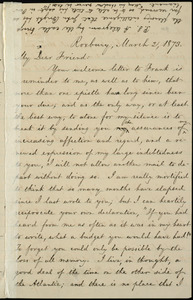 Roxbury, March 31, 1873.
My Dear Friend:
Your welcome letter to Frank is a
reminder to me, as well as to him, that
more than one epistle has long since been
your due; and as the only way, or at least
the best way, to atone for my silence is to
beat it by sending you my assurances of
unceasing affection and regard, and a re-
newed expression of my large indebtedness
to you, I will not allow another mail to de-
part without doing so. I am really mortified
to think that so many months have elapsed
since I last wrote to you, but I can heartily
reciprocate your own declaration, "If you had
heard from me as often as it was in my heart
to write, what a budget you would have had!"
To forget you could only be possible by the
loss of all memory. I live, in thought, a
good deal of the time on the other side of
the Atlantic; and there is no place that I